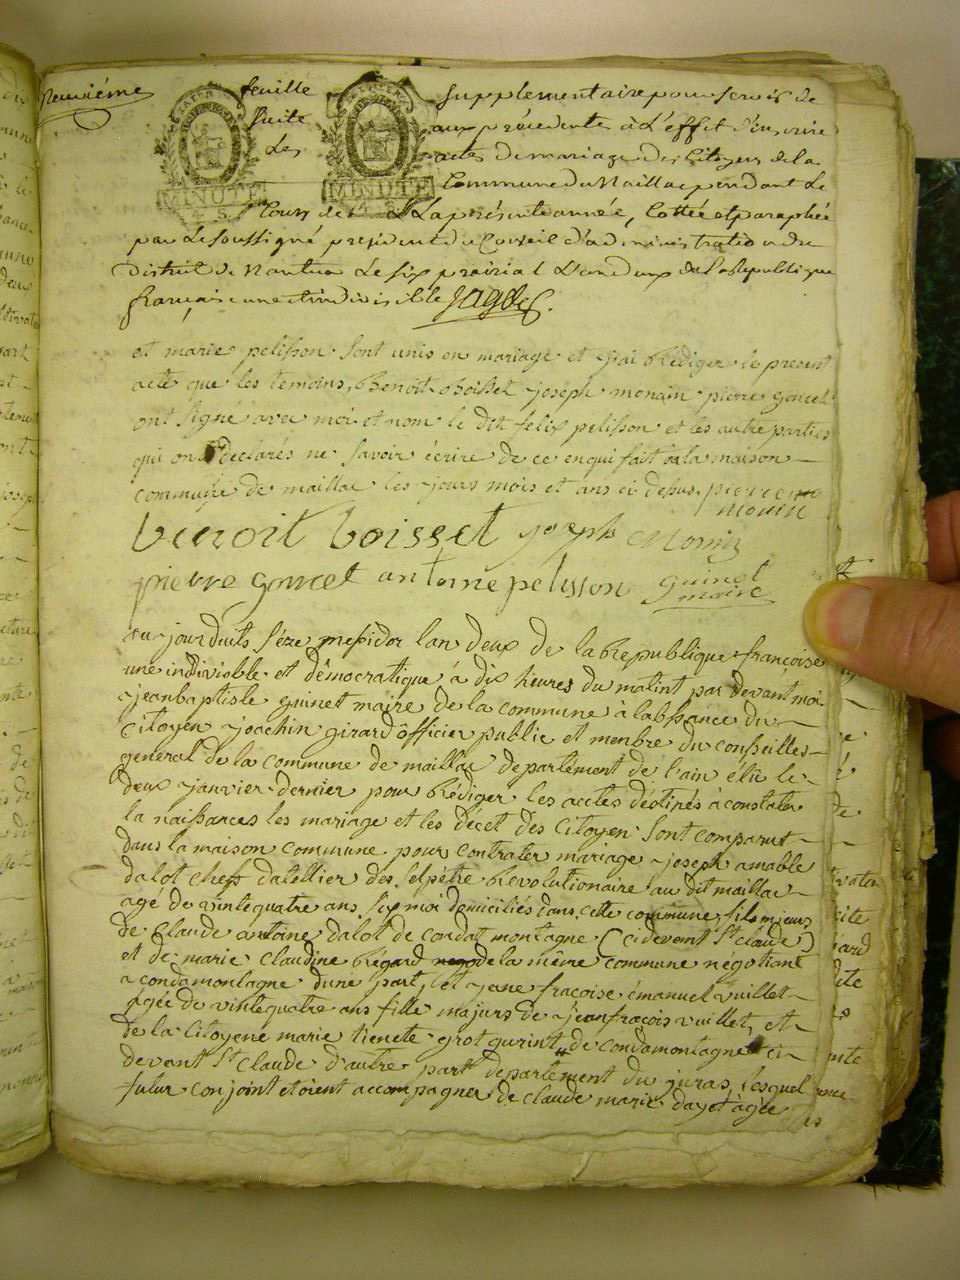 Neuviéme feuille supplementaire pour servir de
suite aux précedentes à l'effet d'inscrire
les actes de mariage des Citoyens de la
Commune du Maillac pendant le
MINUTE MINUTE
Cours de la présente année, Cottée et paraphée
par le soussigné president du Conseil d'administration du
district de Nantua le six prairial l'an deux de la Republique
française une et indivisible
et marie pelisson sont unis en mariage et j'ai rédiger le present
acte que les temoins, Benoit Boisset joseph monain pierre goncet
ont signé avec moi et nom le dit felix pelisson et les autre parties
qui on déclarés ne savoir écrire de ce enqui fait à la maison
commune de maillac les jours mois et ans ci depus. pierre
monin
benoit boisset joseph Monin
pierre goncet antoine pelisson guinet
maire
au jourduits séze mesidor lan deux de la republique françoise
une indivisible et démocratique à dix heures du matint par devant moi
jeanbaptiste guinet maire de la commune à labssance du
Citoyen joachin girard officier public et menbre du consseilles
general de la commune de maillac departement de l'ain élu le
deux janvier dernier pour rédiger les acctes déstinés à constater
la naissances les mariage et les décet des Citoyen sont comparut
dans la maison commune pour contrater mariage joseph amable
dalot cheff datellier des selpêtre révolutionaire au dit maillac
agé de vintequatre ans six moi domiciliés dans cette commune fils mieurs
de Claude antoine dalot de condat montagne (ci devent St Claude)
et de marie Claudine régard de la même commune négotiant
a condamontagne dune part, et jeane fraçoise émanuel vuillet
agée de vintequatre ans fille majurs de jean fraçois vuillet, et
de la Citoyene marie tienete grot gurint de condamontagne ci
devant St Claude d'autre part departement du juras, lesquel
futur conjoint etoient accompagner de Claude marie dayet agée